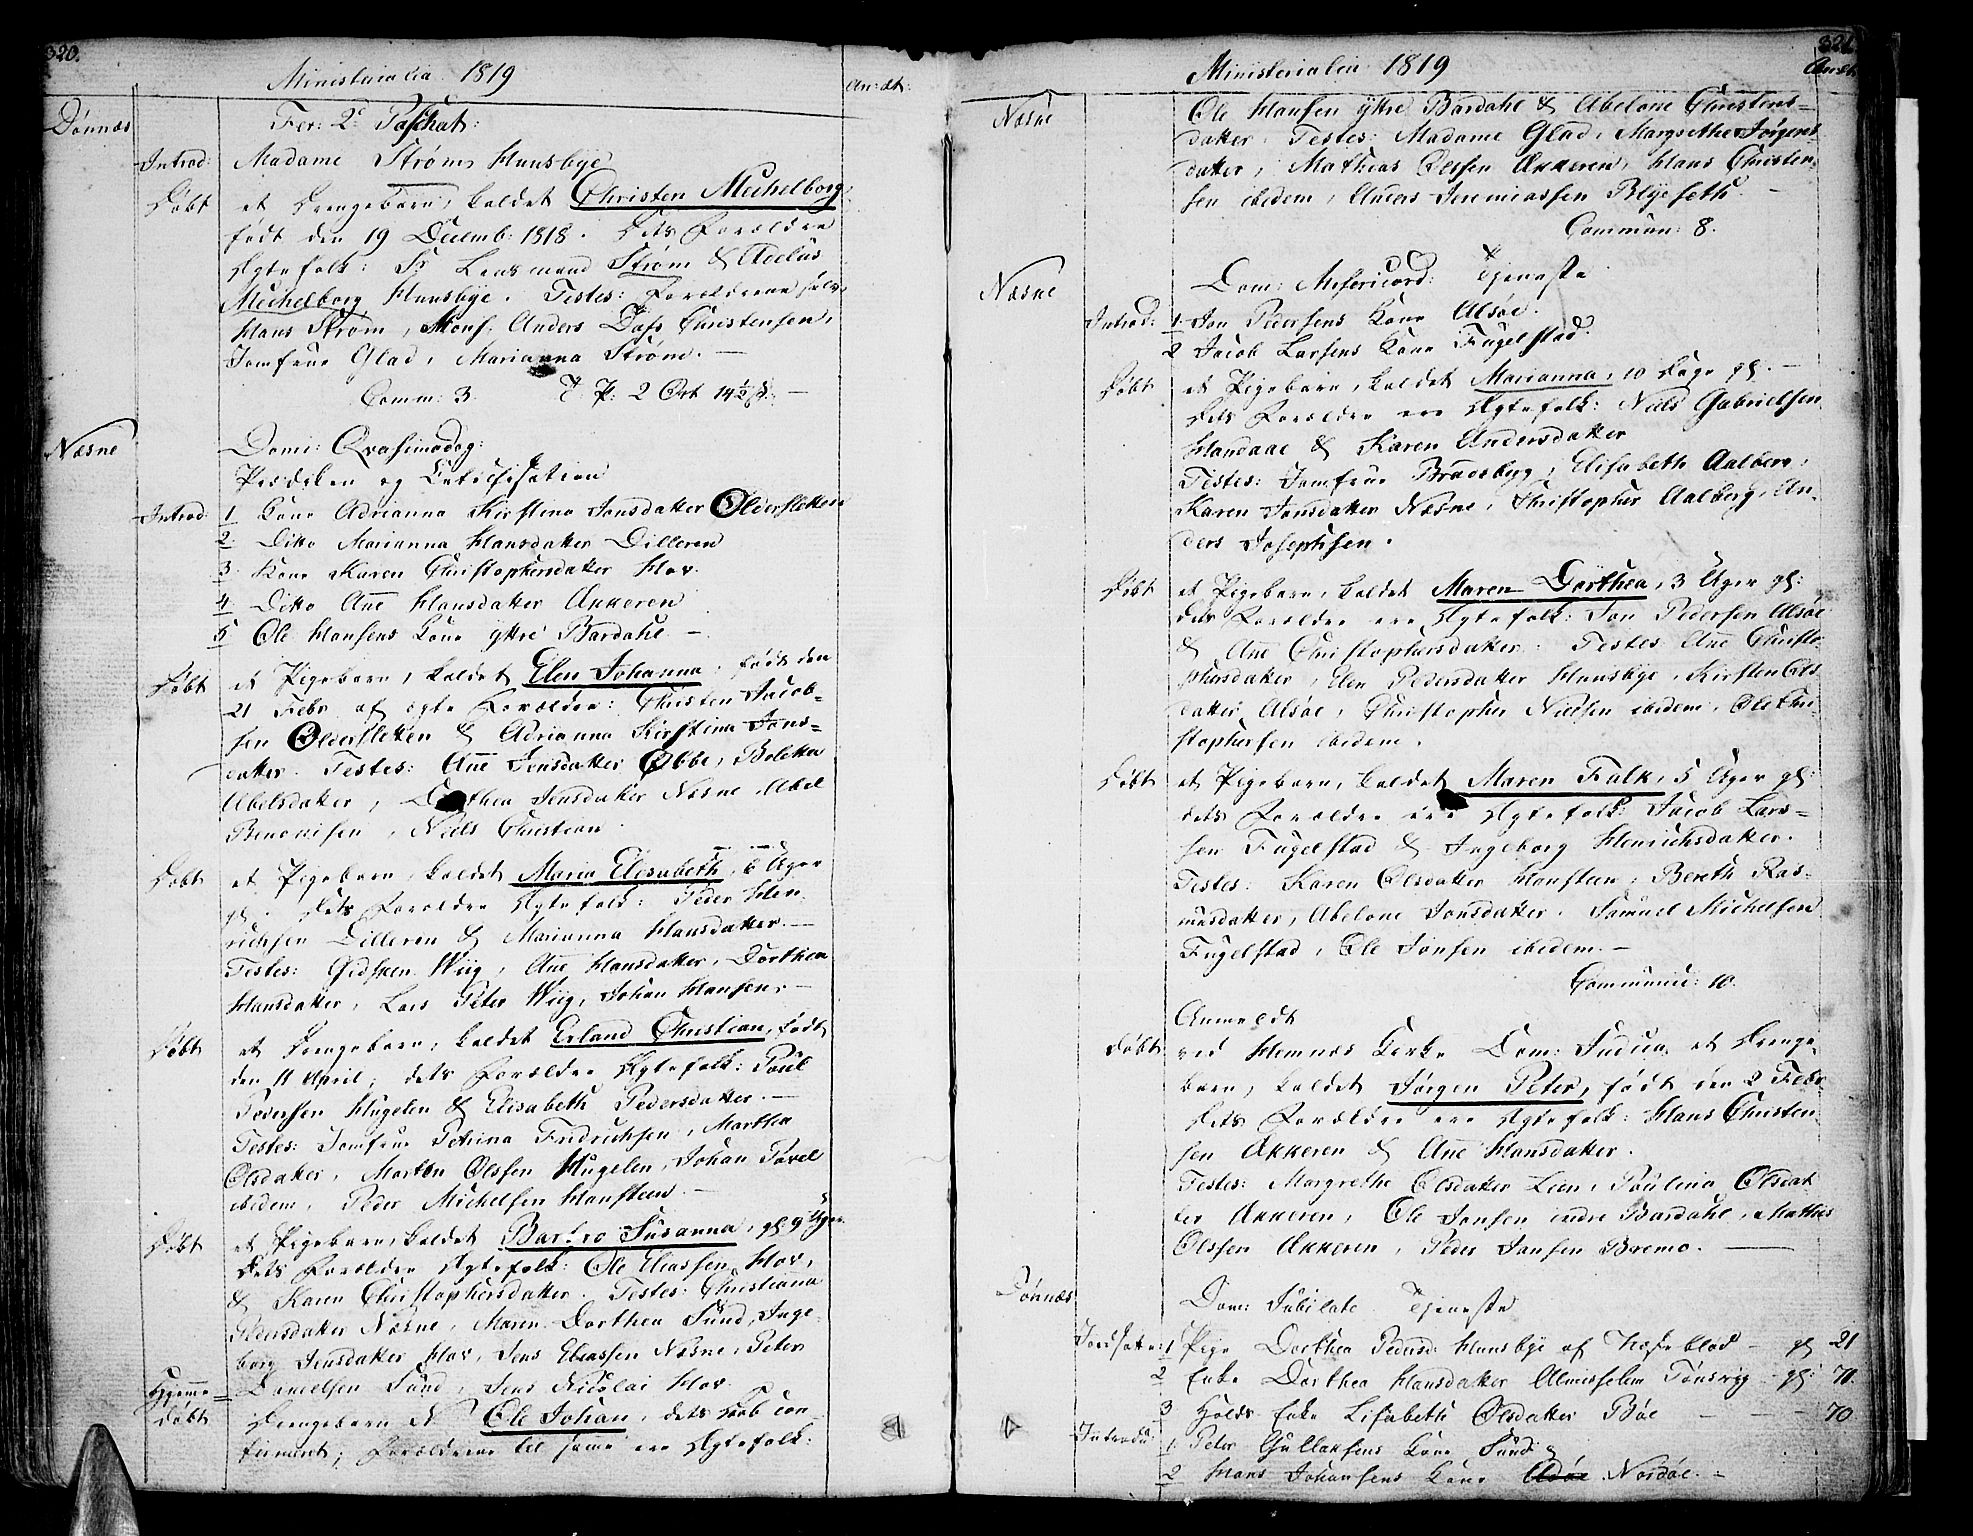 320.
Ministerialia 1819
An: dt:
Dönnæs
Fer: 2.c Paschat:
Introd: Madame Strøm, Huusbye
Døbt et Drengebarn, kaldet Christen Mechelborg,
født den 19 Decemb: 1818. Dets Forældre
Ægtefolk: Sr Lensmand Strøm & Adelus
Mechelborg Huusbye. Testes: Forældrene sielv
Hans Strøm, Mons. Anders Dass Christensen,
Jomfrue Glad, Marianna Strøm. —
Comm: 3. T. P: 2 Ort 14½ s. —
Næsne
Domi: Qvasimodog:
Prædiken og Catechisation
Introd: 1 Kone Adrianna Kirstina Jonsdatter Oldersletten
2. Ditto Marianna Hansdatter Dilleren
3. Kone Karen Christophersdatter Hov.
4 Ditto Ane Hansdatter Akkeren
5 Ole Hansens Kone yttre Bardahl —
Døbt et Pigebarn, kaldet Elen Johanna, født den
21 Febr. af ægte Forældre: Christen Jacob-
sen Oldersletten & Adrianna Kirstina Jons-
datter. Testes: Ane Jensdatter Øbbe, Boletta
Abelsdatter, Dorthea Jensdatter Næsne, Abel
Benonisen, Niels Christian.
Døbt et Pigebarn, kaldet Maria Elisabeth, 6 Uger
gl. Dets Forældre Ægtefolk: Peder Hen-
richsen Dilleren & Marianna Hansdatter. —
Testes: Gidsken Wiig, Ane Hansdatter, Dorthea
Hansdatter, Lars Peter Wiig, Johan Hansen. —
Døbt et Drengebarn, kaldet Erland Christian, født
den 11 April; dets Forældre Ægtefolk: Poul
Pedersen Hugelen & Elisabeth Pedersdatter. —
Testes: Jomfrue Petrina Fridrichsen, Marthea
Olsdatter, Morten Olssen Hugelen, Johan Povel
ibidem, Peder Michelsen Hansteen. —
Døbt et Pigebarn, kaldet Barbro Susanna, gl 9 Uger
Dets Forældre Ægtefolk: Ole Eliassen Hov,
& Karen Christophersdatter. Testes: Christiana
Pedersdatter Næsne, Maren Dorthea Sund, Inge-
borg Jensdatter Hov, Jens Eliassen Næsne, Peter
Danielsen Sund, Jens Nicolai Hov.
Hjemme-
døbt Drengebarn N. Ole Johan, dets Daab con-
firmeret; Forældrene til samme ere Ægtefolk:
321
Ministerialia 1819
An: dt:
Næsne
Ole Hansen yttre Bardahl & Abelone Christens-
datter. Testes: Madame Glad, Margrethe Jørgens
datter, Mathias Olssen Akkeren, Hans Christen-
sen ibidem, Anders Jeremiassen Blyeseth. —
Commun: 8.
Næsne
Dom: Misericord: Tjeneste
Introd: 1 Jon Pedersens Kone Alsøe.
2 Jacob Larsens Kone Fugelstad.
Døbt et Pigebarn, kaldet Marianna, 10 Dage gl. —
Dets Forældre ere Ægtefolk: Niels Gabrielsen
Handaae & Karen Andersdatter
Testes: Jomfrue Bradsberg, Elisabeth Aalberg,
Karen Jonsdatter Næsne, Christopher Aalberg, An-
ders Josephsen.
Døbt et Pigebarn, kaldet Maren Dorthea, 3 Uger gl:
dets Forældre ere Ægtefolk: Jon Pedersen Alsøe
& Ane Christophersdatter. Testes: Ane Christo-
phersdatter, Elen Pedersdatter Huusbye, Kirsten Ols
datter Alsøe, Christopher Nielsen ibidem, Ole Chri-
stophersen ibidem.
Døbt et Pigebarn, kaldet Maren Falk, 5 Uger gl:
dets Forældre ere Ægtefolk: Jacob Lars-
sen Fugelstad & Ingeborg Henrichsdatter.
Testes: Karen Olsdatter Hansteen, Bereth Ras-
musdatter, Abelone Jonsdatter, Samuel Michelsen
Fugelstad, Ole Jonsen ibidem. —
Communic: 10.
Anmeldt
Døbt ved Hemnæs Kirke Dom: Judica, et Drenge-
barn, kaldet Jørgen Peter, født den 2 Febr.
Dets Forældre ere Ægtefolk: Hans Christen-
sen Akkeren & Ane Hansdatter.
Testes: Margrethe Olsdatter Lien, Paulina Olsdat-
ter Akkeren, Ole Jonsen indre Bardahl, Mathis
Olssen Akkeren, Peder Jonsen Bremo. —
Dönnæs
Dom: Jubilate. Tjeneste
Jordsatte: 1 Pige Dorthea Pedersd: Huusbye af — gl 21
2 Enke Dorthea Hansdatter Tønsvig — gl: 70.
3 Enke Lisabeth Olsdatter Bøe — 70
Introdu: 1. Peter Gullaksens Kone Sund.
2 Hans Johansens Kone Nordøe. —